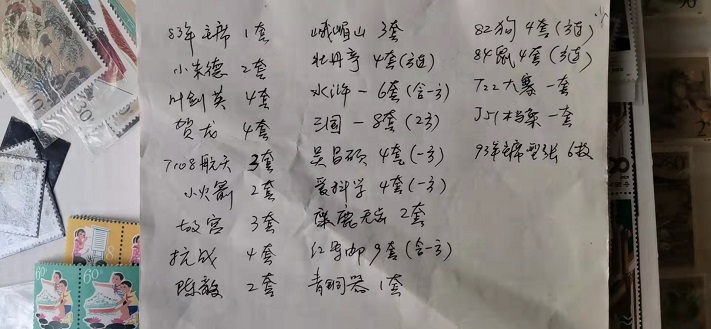 83年主席 1套
小朱德 2套
叶剑英 4套
贺龙 4套
T108航天 3套
小火箭 2套
故宫 3套
抗战 4套
陈毅 2套
峨嵋山 3套
牡丹亭 4套(3连)
水浒一 6套(含一方)
三国一 8套(2方)
吴昌硕 4套(一方)
爱科学 4套(一方)
麋鹿无齿 2套
红军邮 9套(含一方)
青铜器 1套
82狗 4套(方连)
84鼠 4套(方连)
T22大寨 一套
J51档案 一套
93年主席型张 6枚